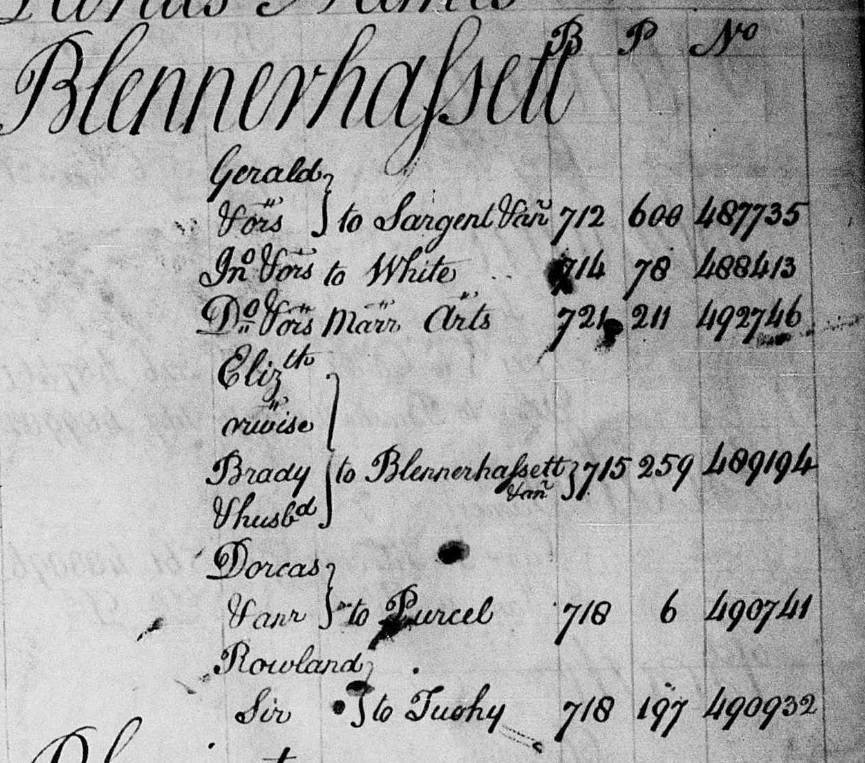 B P No
Blennerhassett
Gerald
& ors } to Sargent & an.r 712 600 487735
Jno & ors to White 714 78 488413
Do & ors Marr Arts 721 211 492746
Elizth
Brady } to Blennerhassett & anr } 715 259 489194
& husbd
Dorcas
& anr } to Purcel 718 6 490741
Rowland
Sir } to Tuohy 718 197 490932